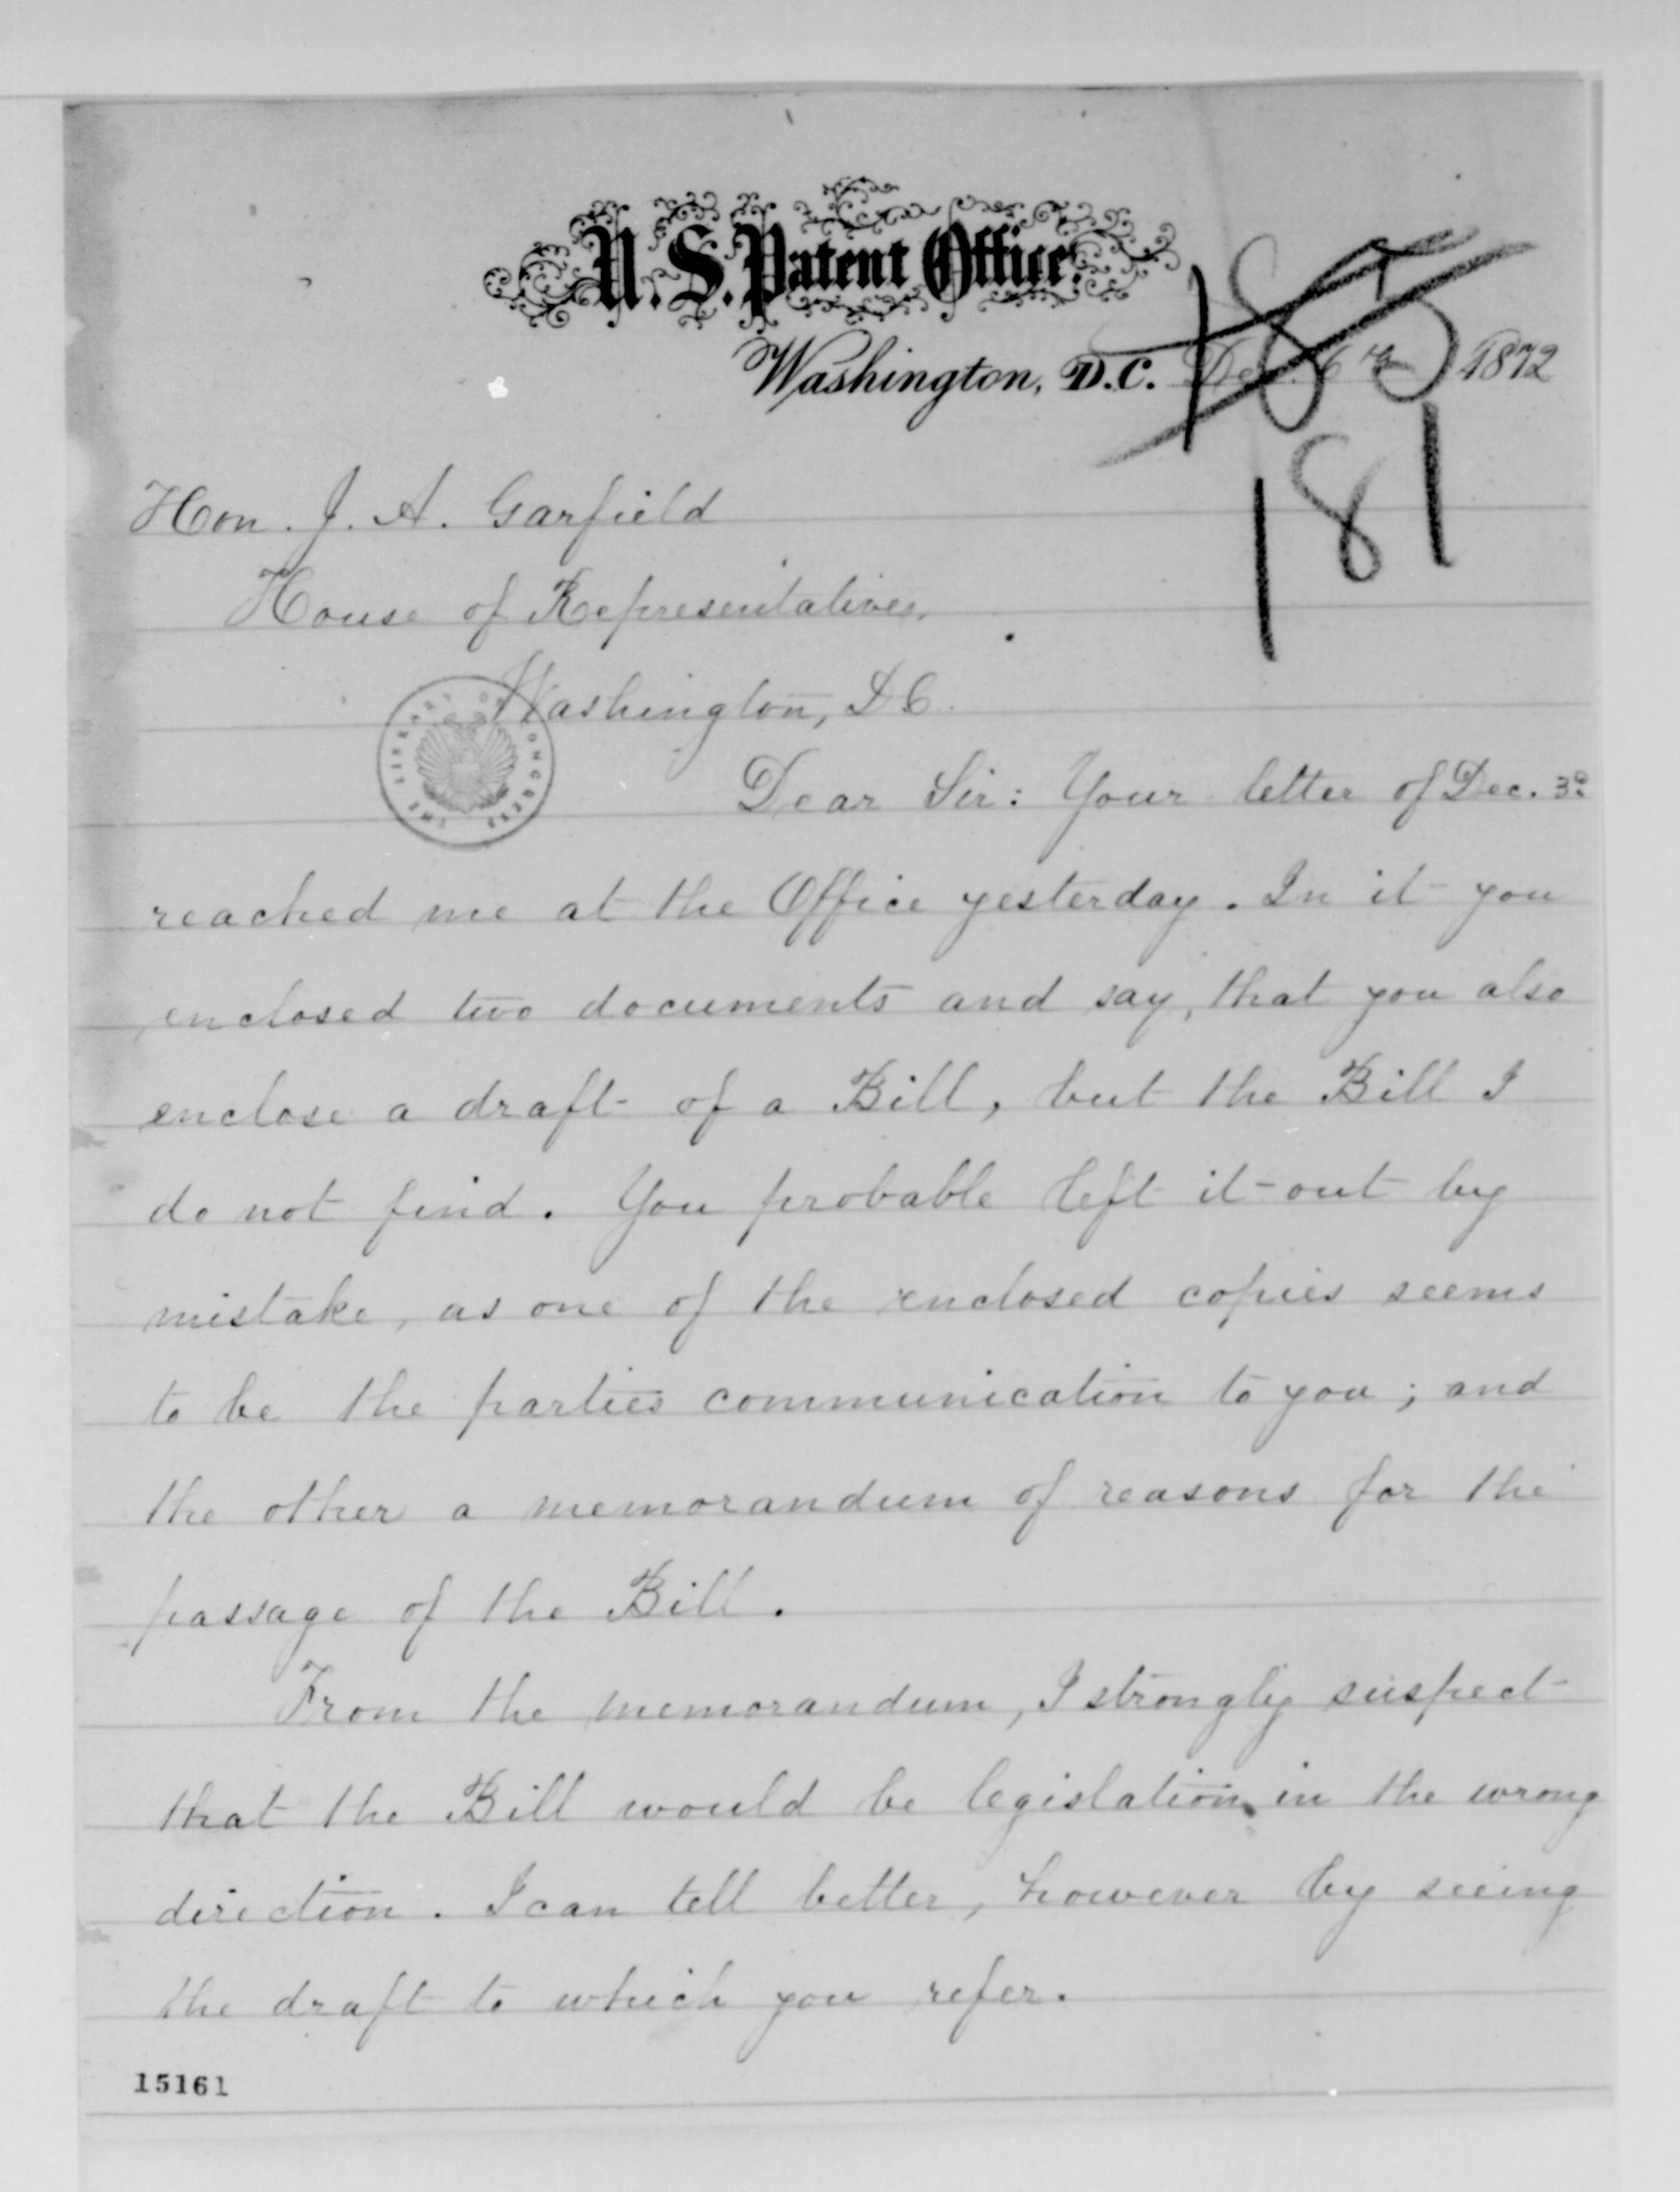 U. S. Patent Office.
185
Washington, D.C. Dec. 6th 1872
181
Hon. J. A. Garfield
House of Representatives,
Washington, D.C.
THE LIBRARY OF CONGRESS
Dear Sir: Your letter of Dec. 3d
reached me at the Office yesterday. In it you
enclosed two documents and say, that you also
enclose a draft of a Bill, but the Bill I
do not find. You probable left it out by
mistake, as one of the enclosed copies seems
to be the parties communication to you; and
the other a memorandum of reasons for the
passage of the Bill.
From the memorandum, I strongly suspect
that the Bill would be legislation in the wrong
direction. I can tell better, however by seeing
the draft to which you refer.
15161